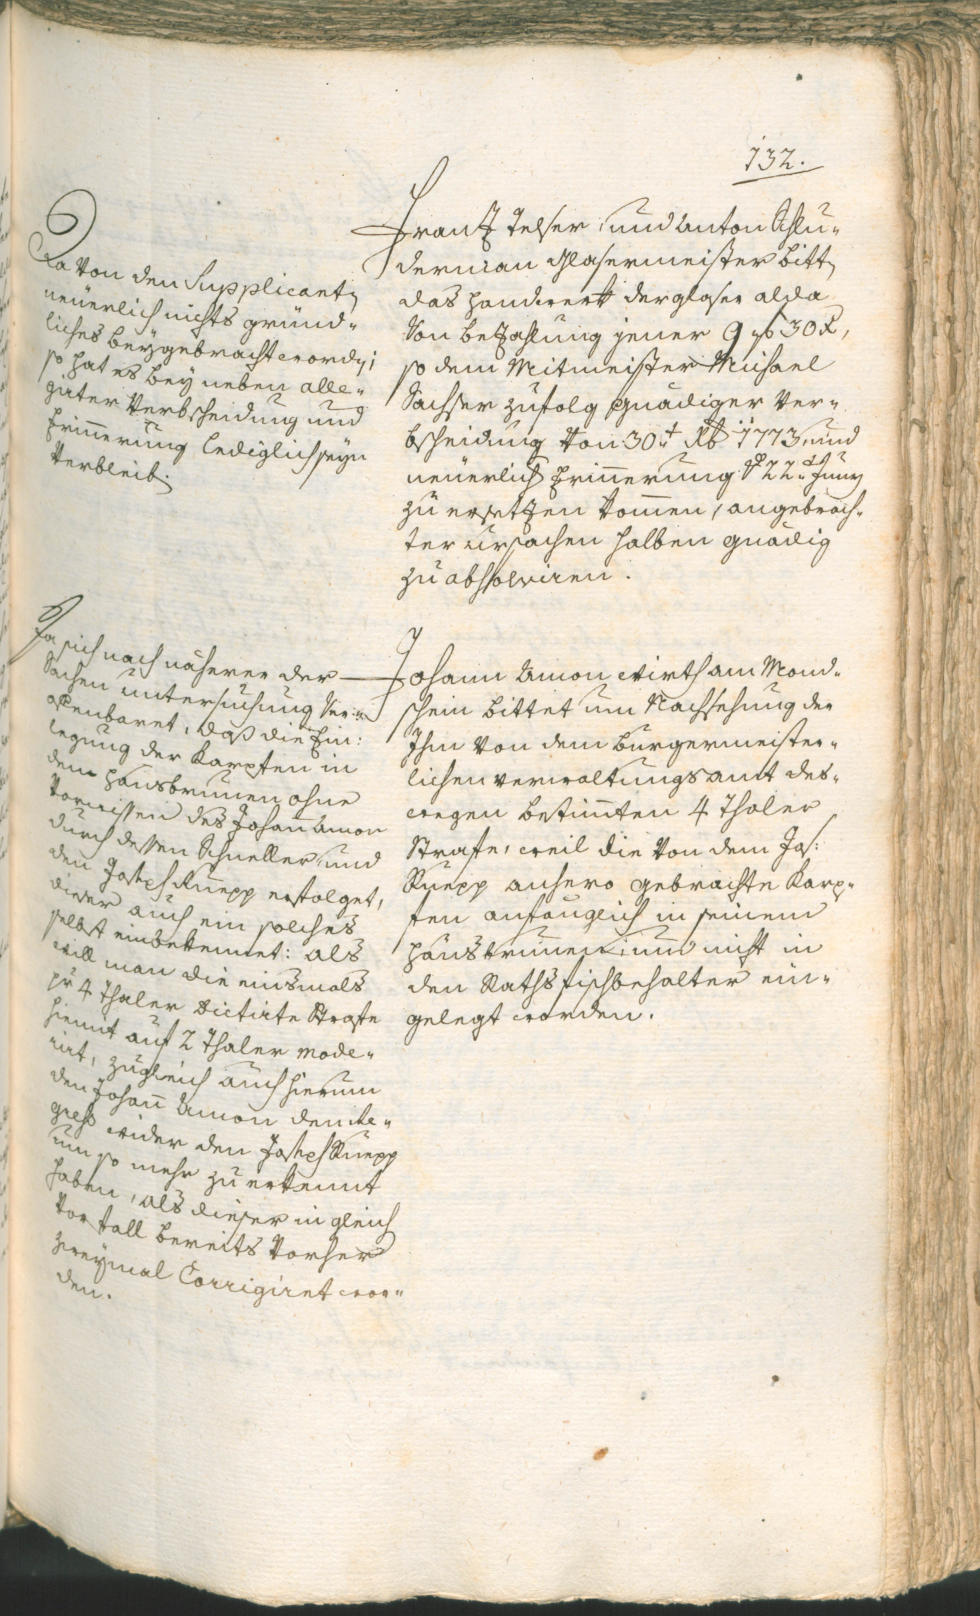 132.
Da von den Supplicanten
neüerlich nichts gründ-
liches beygebracht worden;
so hat es bey neben alle-
girter Verbscheidung und
Erinnerung lediglich seyn
Verbleib.
Frantz Telser, und Anton Schlu-
derman Glasermeister bitten
das Handwerk der glaser alda
von bezahlung jener 9 f 30 x,
so dem Mitmeister Michael
Sachser zufolg gnädiger Ver-
bscheidung von 30t Xb 1773, und
neüerlich Erinnerung de 22t Juny
zu ersetzen kommen, angebrach-
ter ursachen halben gnädig
zu absolviren.
Da sich nach näherer der
Sachen untersuchung ver-
offenbaret, daß die Ein-
legung der Karpfen in
dem Hausbrunen ohne
Vorwissen des Johan Amon
durch dessen Schneller, und
den Joseph Ruepp erfolget,
dieser auch ein solches
selbst einbekennet: als
will man die einsmals
pr 4 Thaler dictirte Strafe
hiemit auf 2 Thaler mode-
rirt, zugleich auch hierum
den Johann Amon den Re-
gress wider den Joseph Ruepp
um so mehr zu erkennt
haben, als dieser in gleich
Vorfall bereits vorher
zweymal Corrigiret wor-
den.
Johann Amon Wirth am Mond-
schein bittet um Nachsehung der
Ihm von dem burgermeister-
lichen verwaltungsamt des-
wegen bestimten 4 Thaler
Strafe, weil die von dem Jos:
Ruepp anhero gebrachte Karp-
fen anfänglich in seinem
Hausbrunen, und nicht in
den Rathsfischbehalter ein-
gelegt worden.